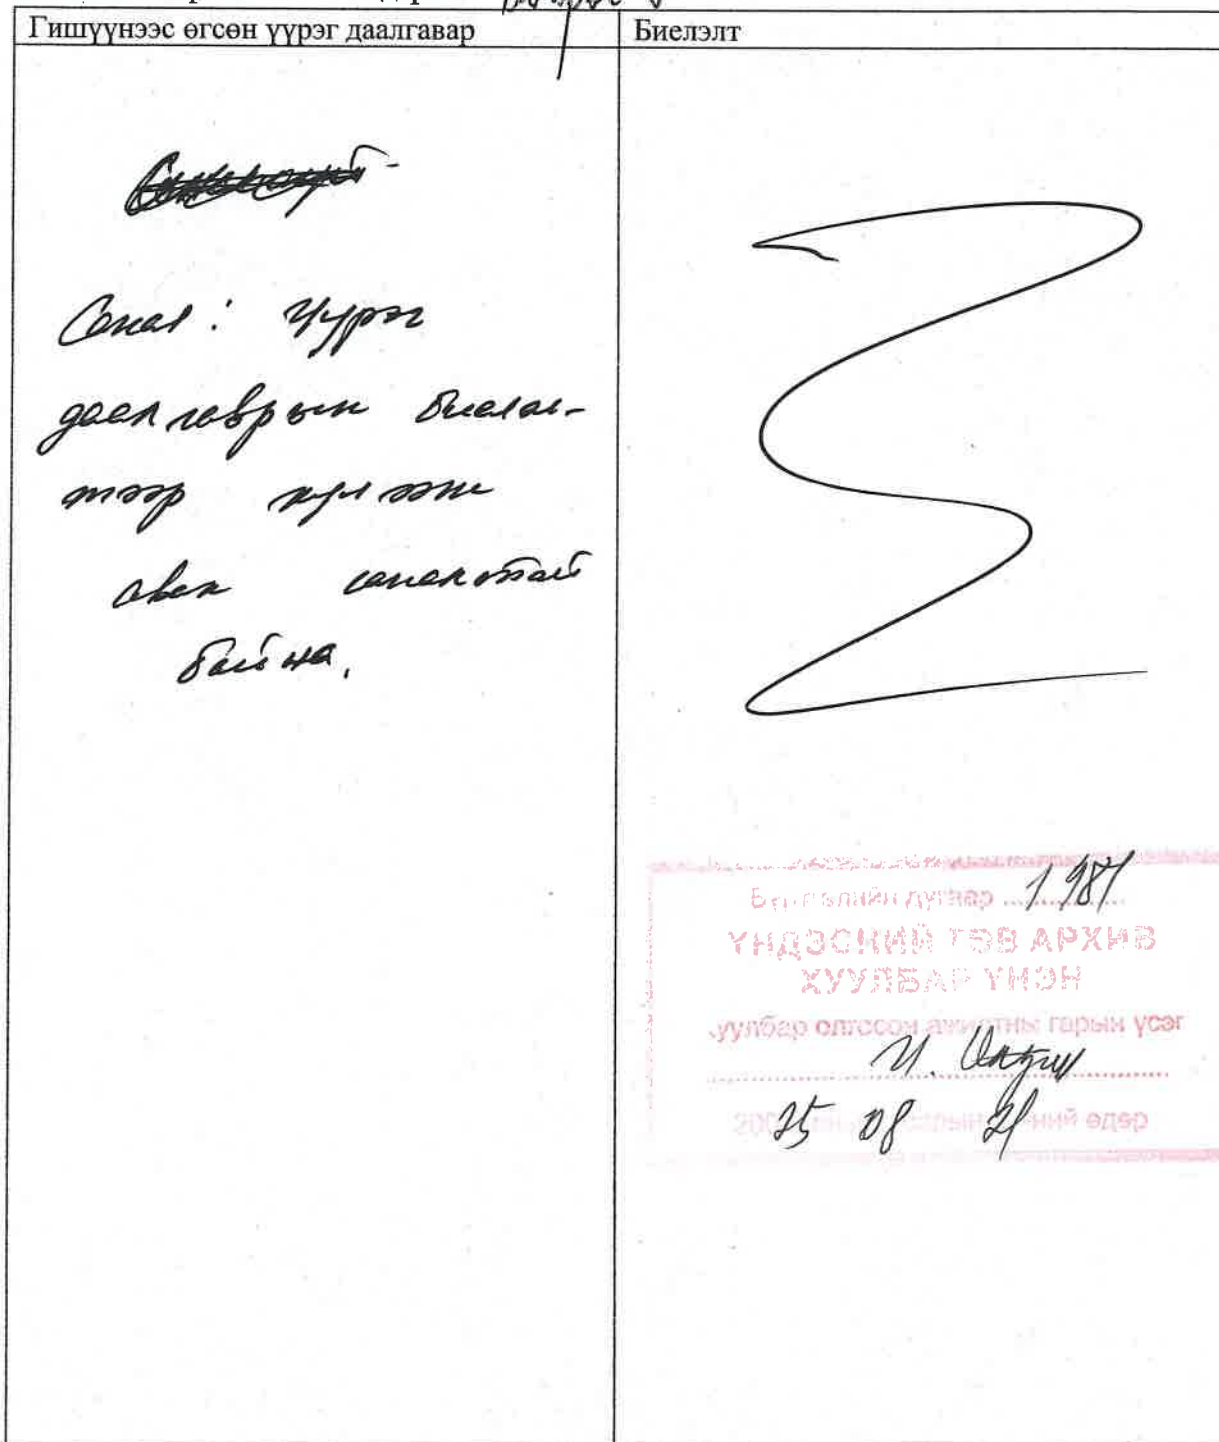 Гишүүнээс өгсөн үүрэг даалгавар
Биелэлт
Санал: Үүрэг
даалгаврын биелэл-
тээр хүлээж
авах саналтай
байна.
дугаар 1981
ҮНДЭСНИЙ ТӨВ АРХИВ
ХУУЛБАР ҮНЭН
олгосон ажилтны гарын үсэг
25 08 21 ний өдөр